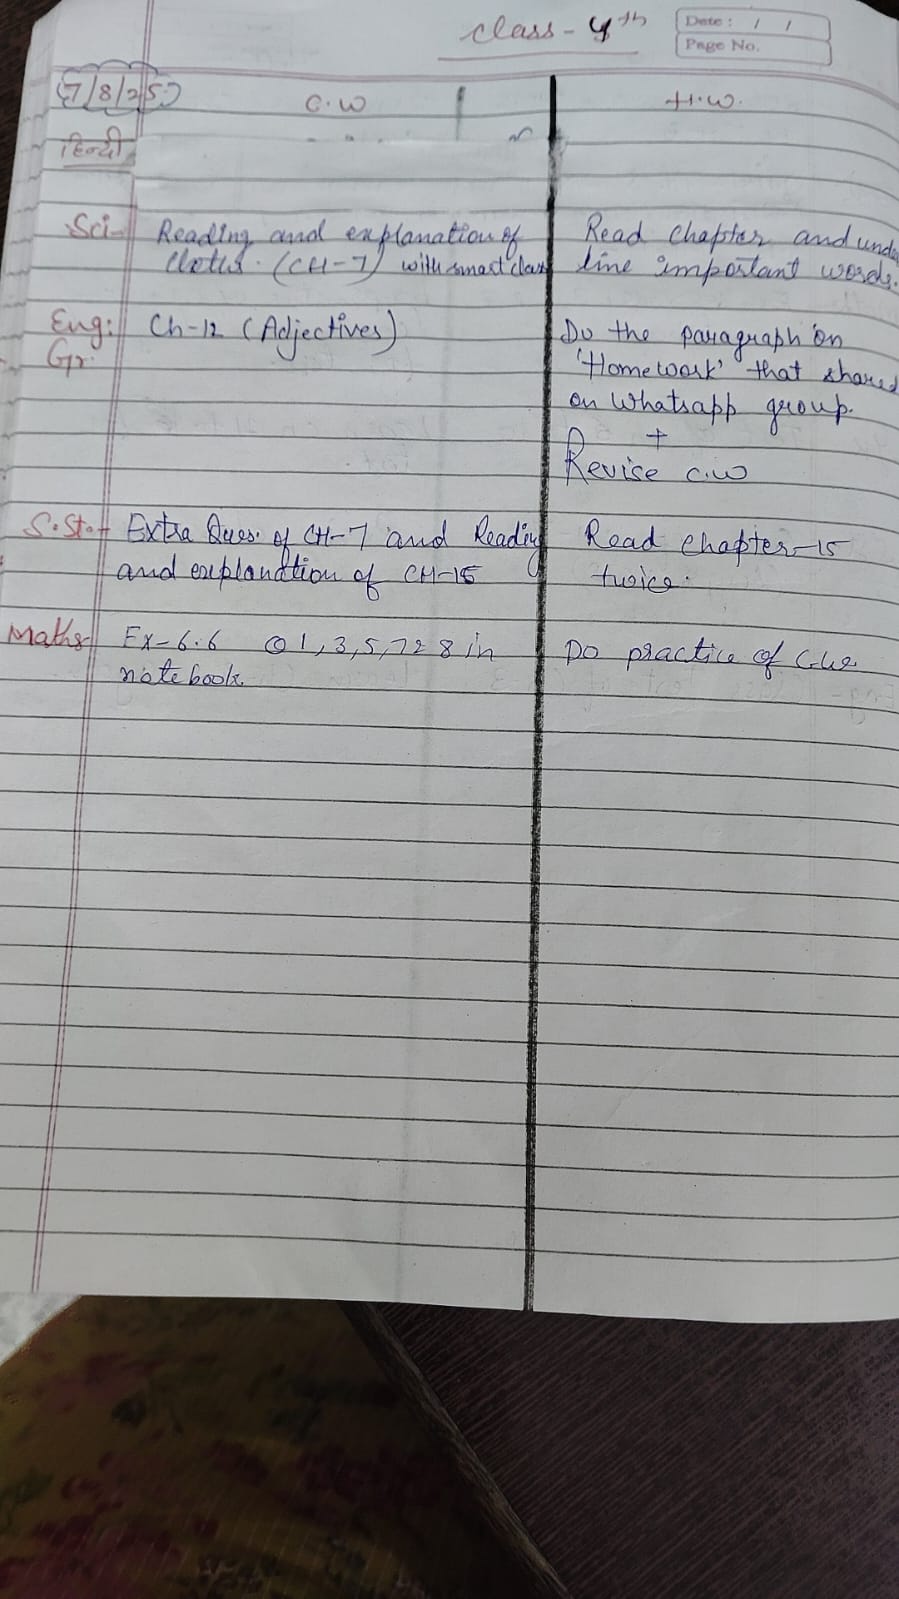 Class - 4th
Date : / /
Page No.
7/8/25
C.W
H.W.
हिन्दी
Sci- Reading and explanation of
Cloths. (CH-7) with smart class
Read Chapter and unde
line important words.
Eng: Ch-12 (Adjectives)
Gr.
Do the paragraph on
'Homework' that shared
on Whatsapp group.
+
Revise C.W
S.St. Extra Ques. of CH-7 and Reading
and explanation of CH-15
Read Chapter-15
twice.
Maths Ex-6.6 Q 1,3,5,7 & 8 in
notebook
Do practice of C.W